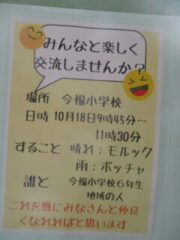 みんなと楽しく
交流しませんか？
場所　今福小学校
日時　10月18日9時45分～
11時30分
すること　晴れ：モルック
雨：ボッチャ
誰と　今福小学校6年生
地域の人
これを機にみなさんと仲良
くなれればと思います